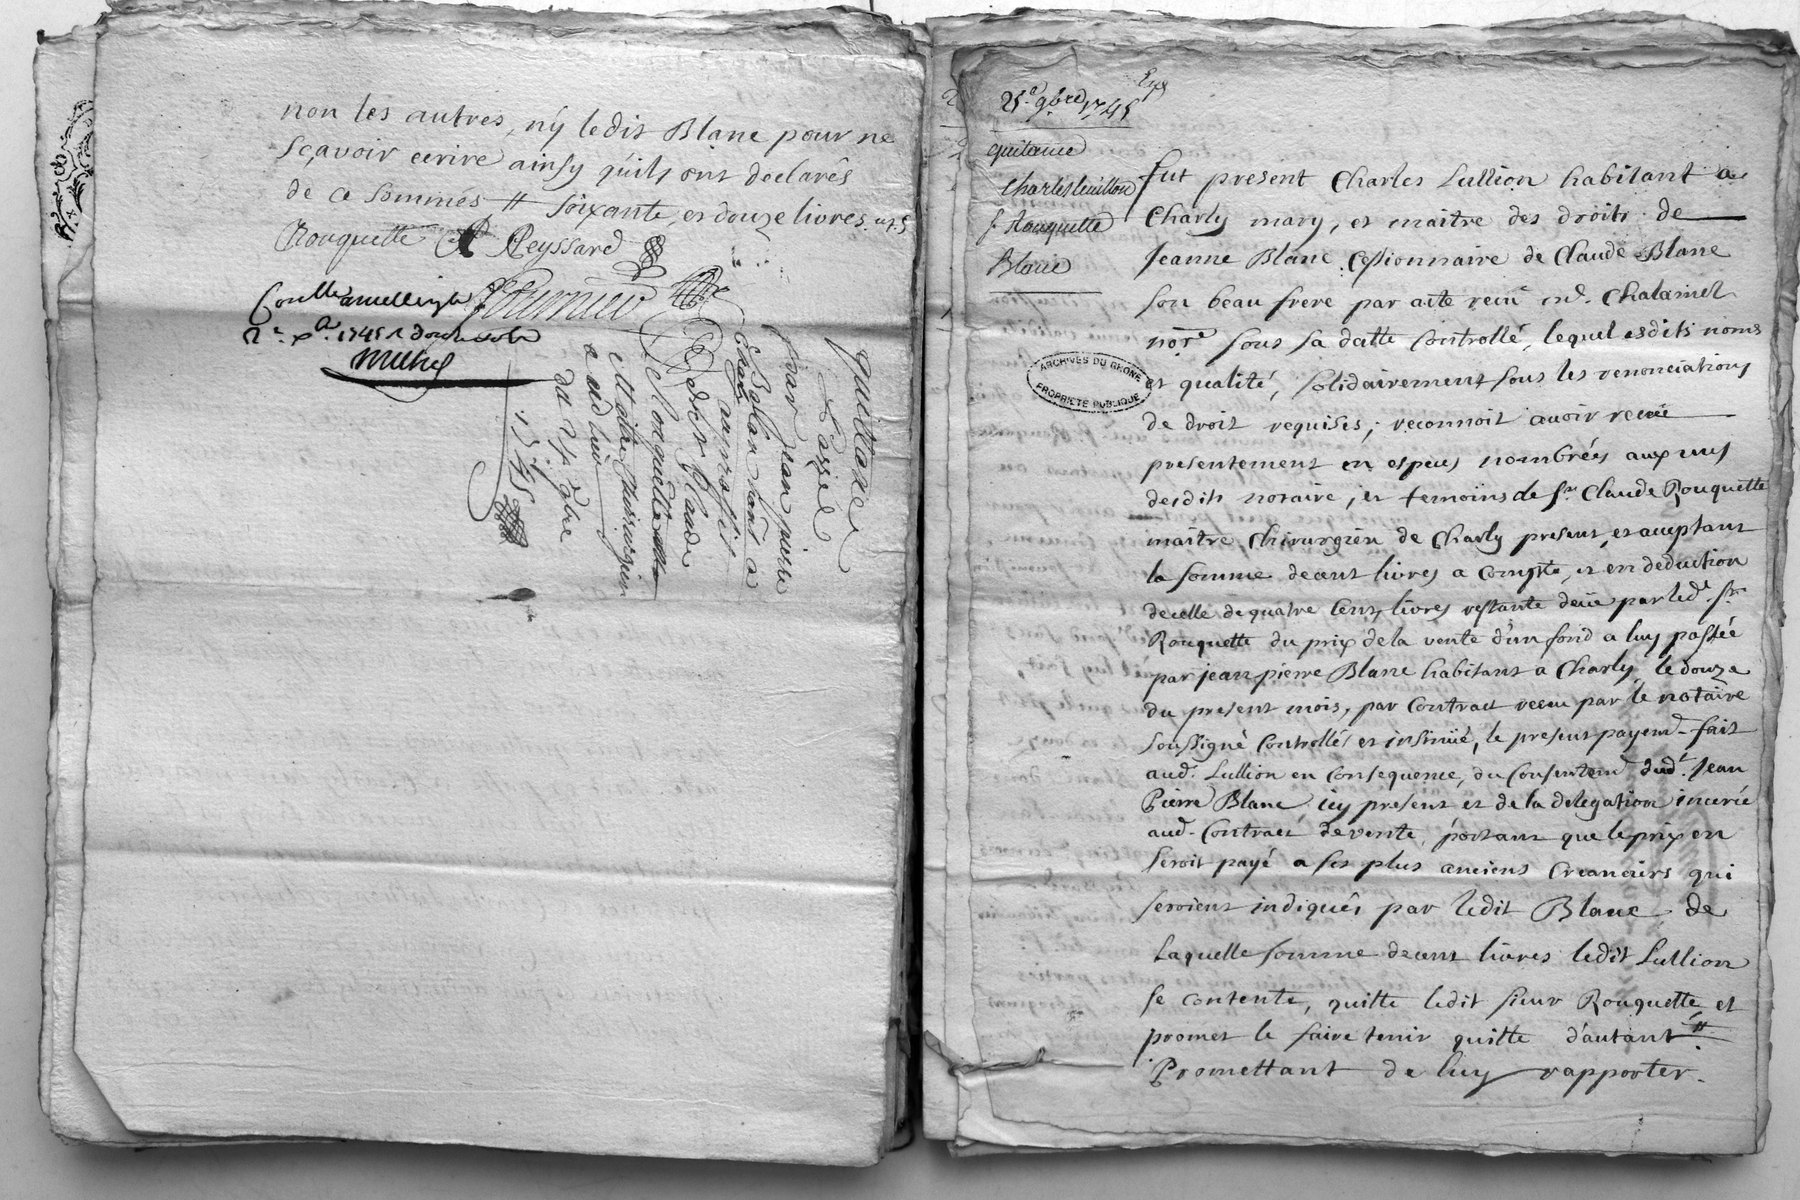 non les autres, n'y ledit Blanc pour ne
sçavoir ecrire ainsy qu'ils ont declarés
de ce sommés # soixante, et douze livres
Rouquette Peyssard
Fournier
2e xbre 1745 R douze sols
quittance
passée
par jean pierre
Blanc habitant a
Charly
au proffit
de sr Claude
Rouquette
Maitre Chirurgien
aud lieu
du 25 9bre
1745
25e 9bre 1745
Exp
quitance
Charles Leuillon
s. Rouquette
Blanc
fut present Charles Lullion habitant a
Charly mary, et maitre des droits de
Jeanne Blanc Cessionnaire de Claude Blanc
son beau frere par acte recu me. Chalamel
nore sous sa datte Controllé, lequel esdits noms
et qualité, solidairement sous les renonciations
de droit requises, reconnoit avoir receu
presentement en especes nombrées aux vues
desdits notaire, et temoins de sr. Claude Rouquette
maitre Chirurgien de Charly present, et acceptant
la somme de cent livres a Compte, et en deduction
de celle de quatre Cent livres restante deüe par led. sr.
Rouquette du prix de la vente d'un fond a luy passée
par jean pierre Blanc habitant a Charly, le douze
du present mois, par Contract receu par le notaire
soussigné Controllés et insinüé, le present payemt. fait
aud. Lullion en Consequence, du Consentemt. dud. Jean
Pierre Blanc, icy present et de la delegation incerée
aud. Contract de vente, portant que le prix en
seroit payé a ses plus anciens Creanciers qui
seroient indiqués par ledit Blanc, de
Laquelle somme de cent livres ledit Lullion
se contente, quitte ledit sieur Rouquette, et
promet le faire tenir quitte d'autant #
Promettant de luy rapporter.
ARCHIVES DU RHONE
PROPRIETE PUBLIQUE